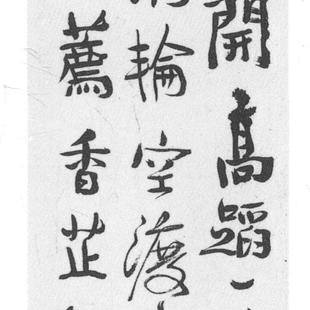 開高蹈
輪空渡
薦香芷